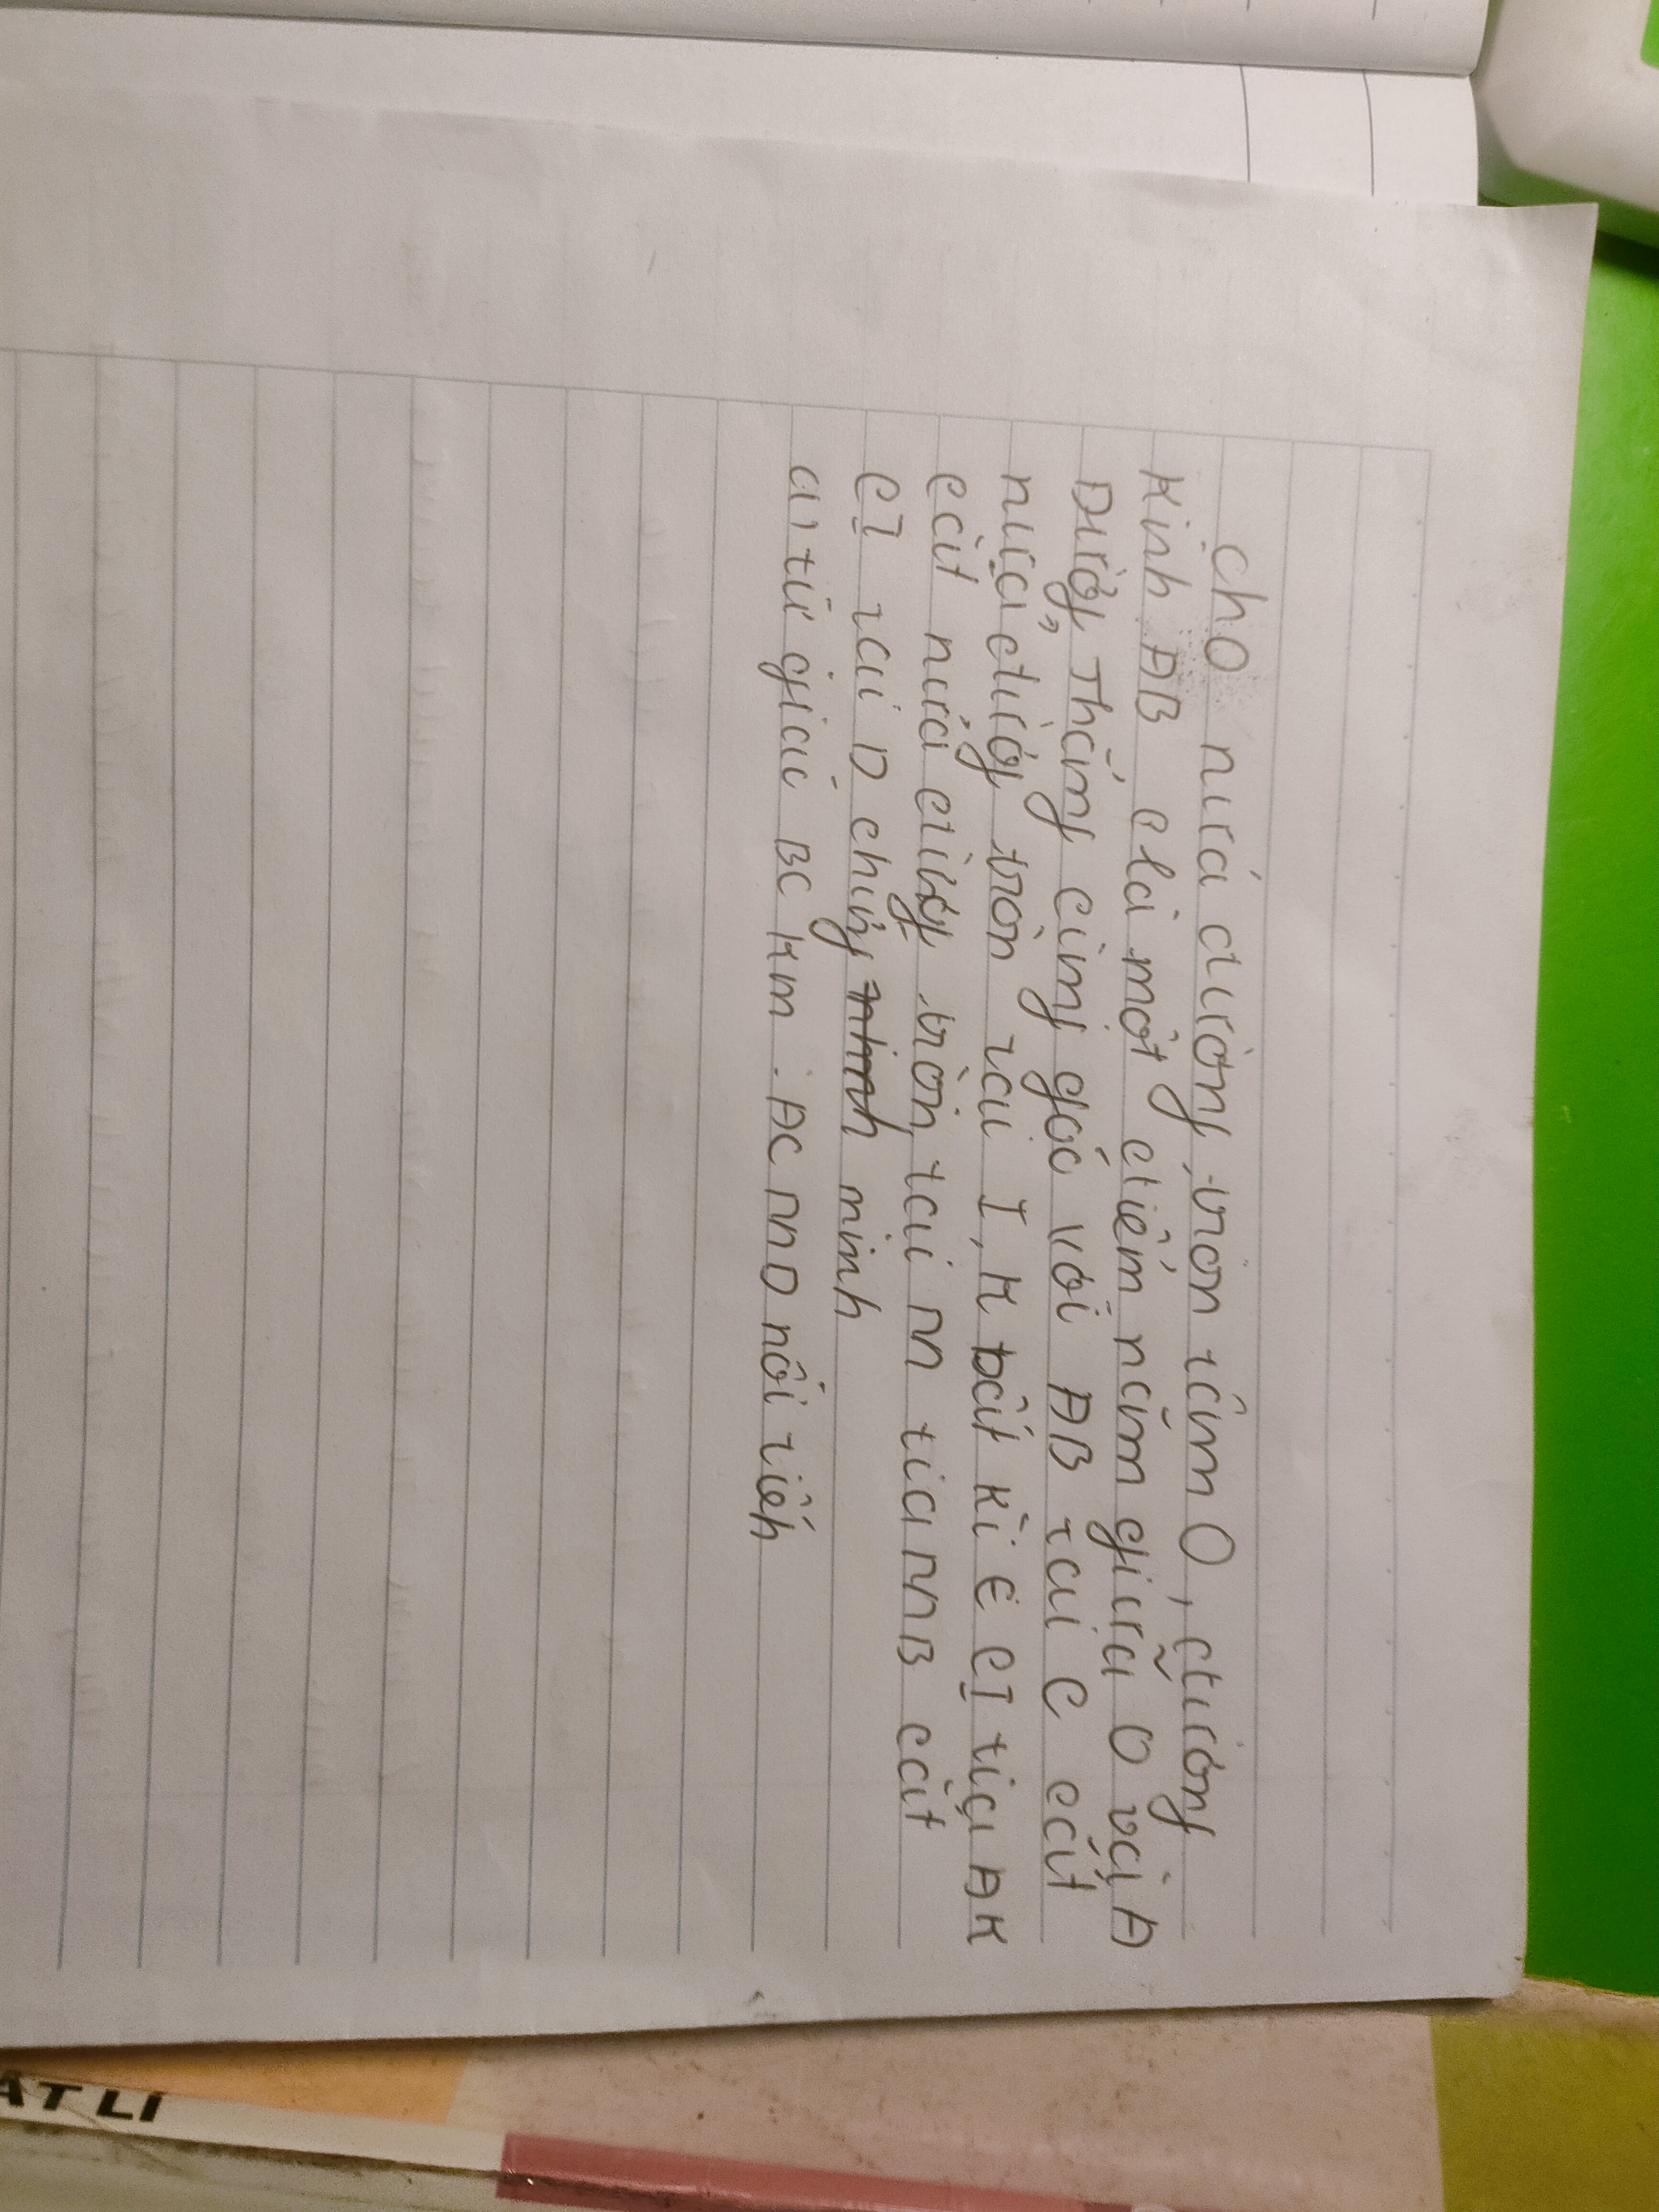 cho nửa đường tròn tâm O, đường
Kính AB C là một điểm nằm giữa O và A
Đường thẳng cùng góc với AB tại C cắt
nửa đường tròn tại I, K bất kì Є CI tia AK
cắt nửa đường tròn tại M tia MB cắt
CI tại D chứng minh
a, tứ giác BCKM : ACMD nội tiếp
ẬT LÍ